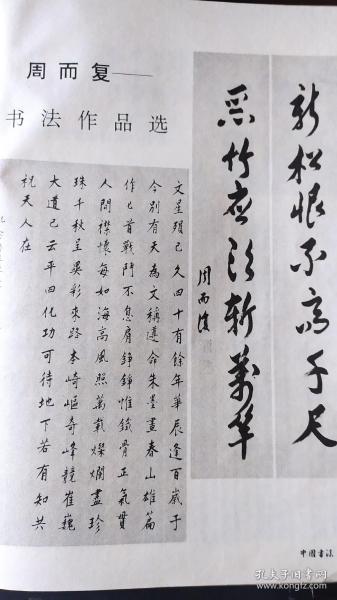 周而复——
书法作品选
新松恨不高千尺
恶竹应须斩万竿
周而复
文星殒已久四十有餘年華辰逢百歲于
今别有天為文稱遵命朱墨畫春山雄篇
作匕首戰鬥不息肩錚錚惟鐵骨正氣貫
人間襟懷每如海高風照萬載燦爛盡珍
珠千秋呈異彩來路本崎嶇奇峰競崔巍
大道已云平四化功可待地下若有知共
祝天人在
中国書法
孔夫子旧书网